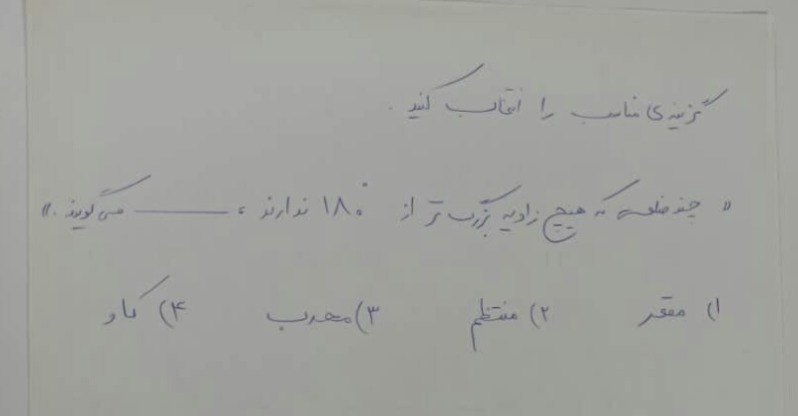 گزینه‌ی مناسب را انتخاب کنید.
« چندضلعی که هیچ زاویه بزرگ تر از ۱۸۰° ندارند، ــــــــ می گویند. »
۱) مقعر ۲) منتظم ۳) محدب ۴) کاو